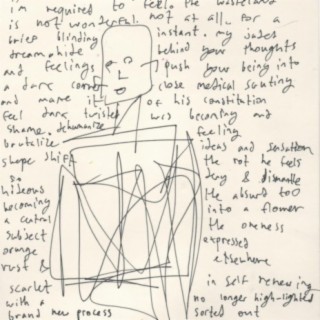 i'm required to feel. the wasteland
is not wonderful. not at all. for a
brief blinding instant. my jades
dream. hide behind your thoughts
and feelings push your being into
a dark corner close medical
and it of his constitution
feel dark twisted was becoming and
shame. dehumanize feeling
brutalize ideas and sensation
shape shift the rot he feels
so deny & dismantle
hideous the absurd too
becoming into a flower
a central the oneness
subject expressed
orange elsewhere
rust &
scarlet in self renewing
with a no longer high-lighted
brand new process sorted out